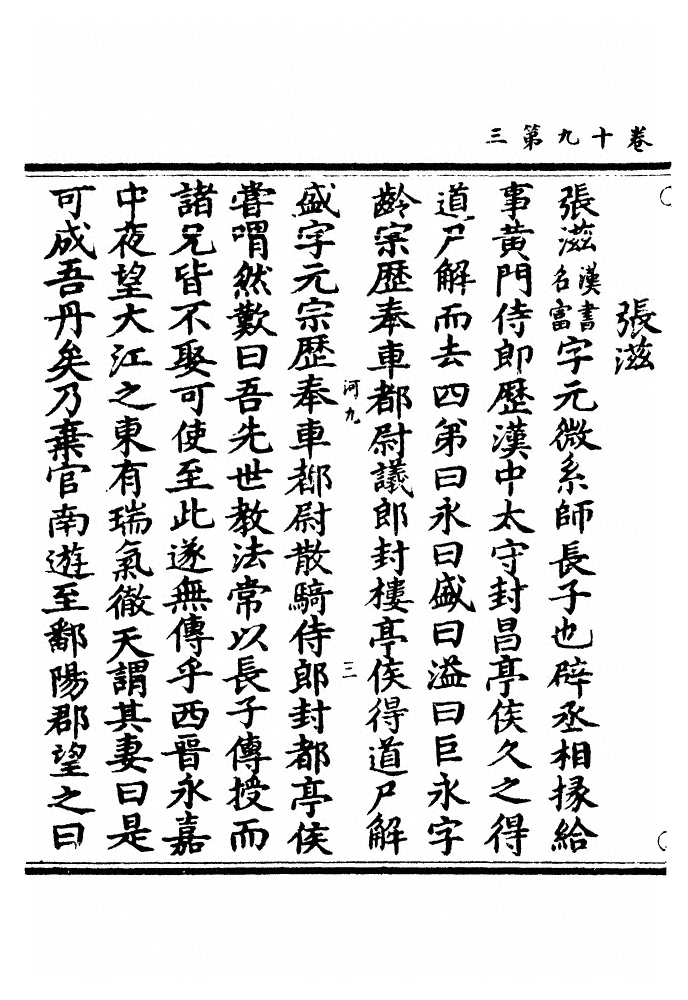 卷十九第三
張滋
張滋漢書名富字元微系師長子也辟丞相掾給
事黃門侍郎歷漢中太守封昌亭侯久之得
道尸解而去四第曰永曰盛曰溢曰巨永字
齡宗歷奉車都尉議郎封樓亭侯得道尸解
河九
三
盛字元宗歷奉車都尉散騎侍郎封都亭侯
嘗喟然歎曰吾先世教法常以長子傳授而
諸兄皆不娶可使至此遂無傳乎西晉永嘉
中夜望大江之東有瑞氣徹天謂其妻曰是
可成吾丹矣乃棄官南遊至鄱陽郡望之曰